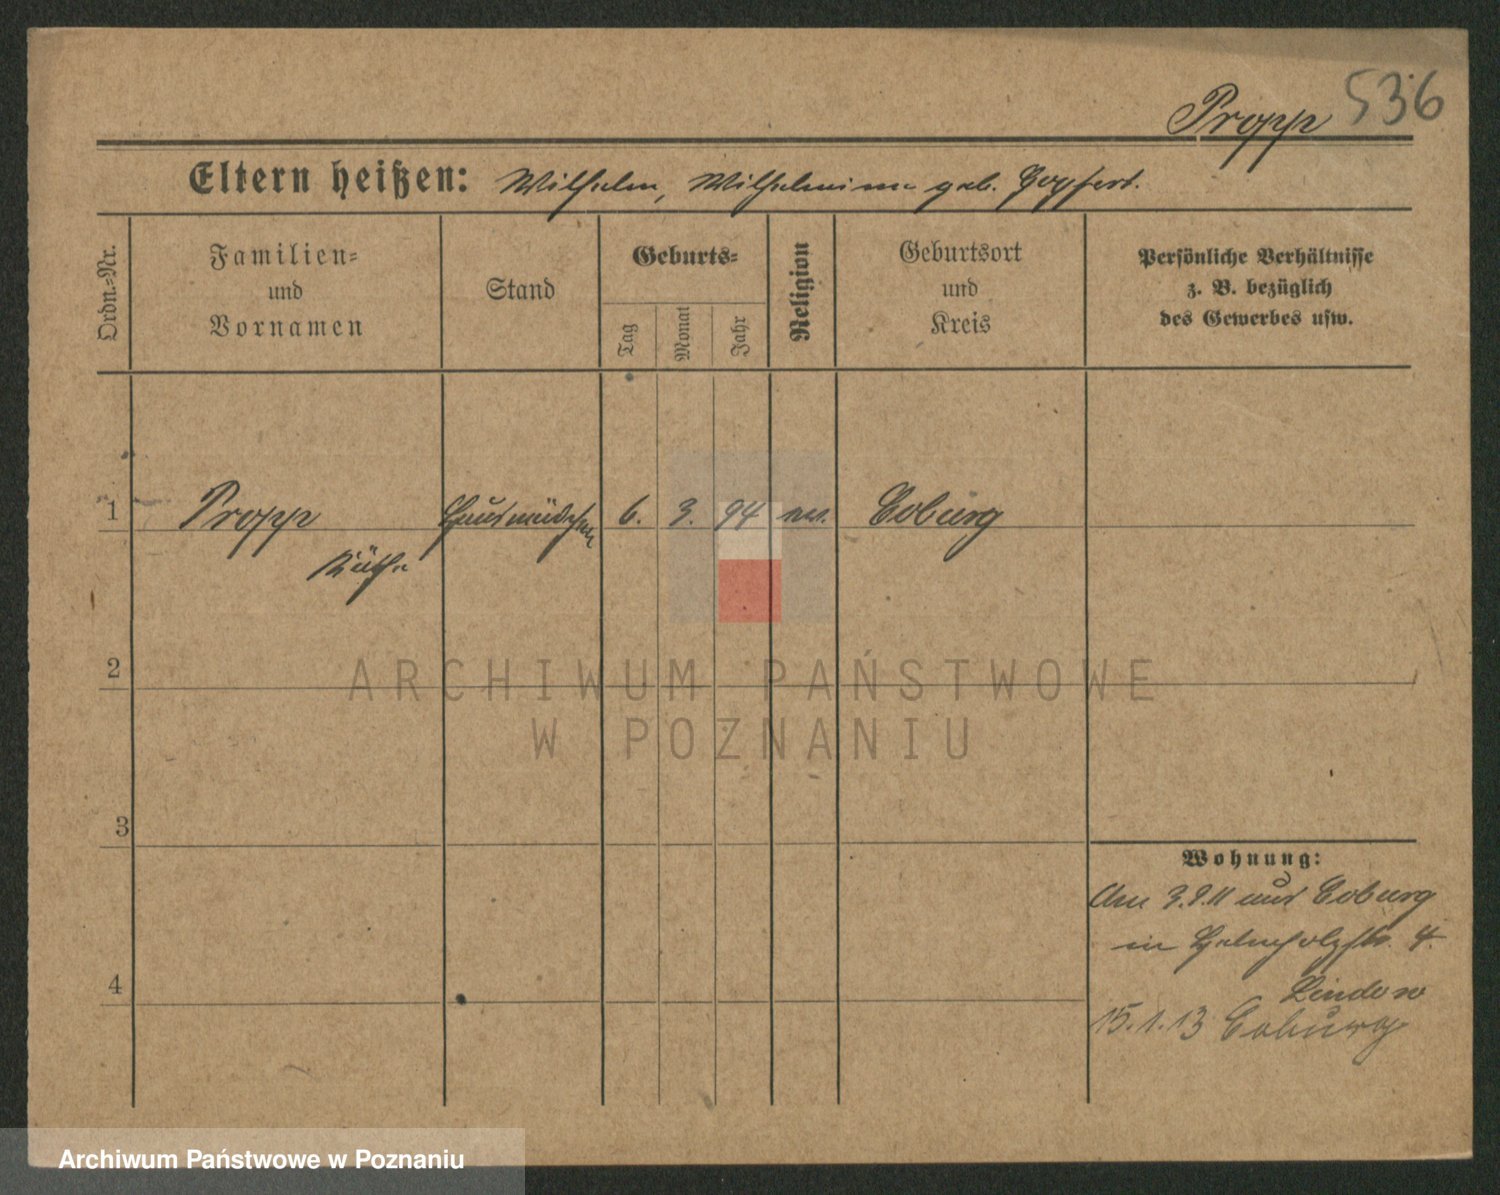 Propp 536
Eltern heißen: Wilhelm, Wilhelmine geb. Gopfert.
Ordn.-Nr.
Familien-
und
Vornamen
Stand
Geburts-
Tag
Monat
Jahr
Religion
Geburtsort
und
Kreis
Persönliche Verhältnisse
z. B. bezüglich
des Gewerbes usw.
1 Propp Hausmädchen 6. 3. 94 ev. Coburg
Käthe
2
3
4
Wohnung:
Am 3.9.11 aus Coburg
in Helmholzstr. 4.
Lindow
15.1.13 Coburg
ARCHIWUM PAŃSTWOWE
W POZNANIU
Archiwum Państwowe w Poznaniu